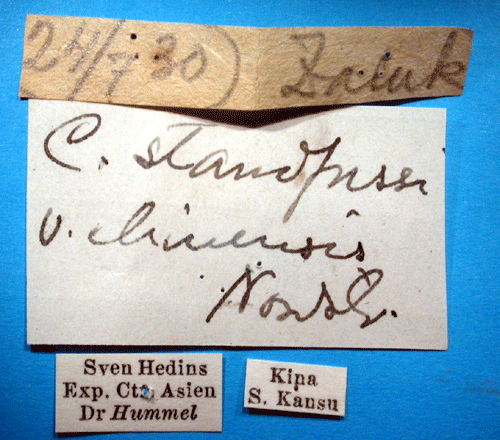 24/7 30) Zaluk
C. standfussi
v. chinensis
Nordstr.
Sven Hedins
Exp. Ctr. Asien
Dr Hummel
Kina
S. Kansu